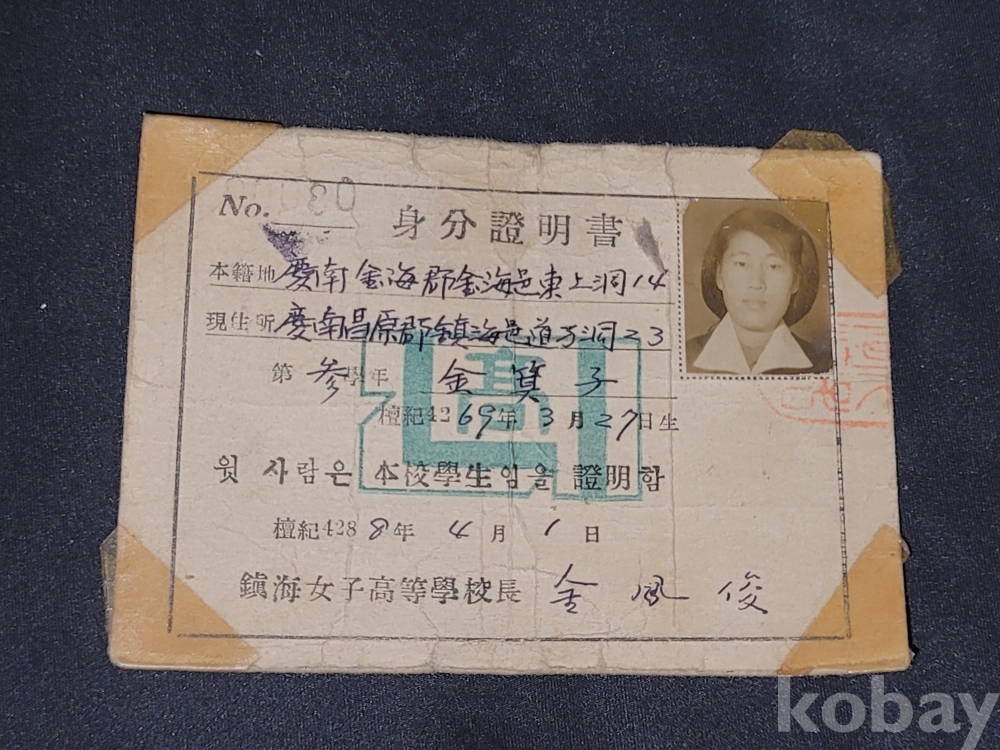 No.
身分證明書
本籍地 慶南金海郡金海邑東上洞14
現住所 慶南昌原郡鎭海邑道万洞23
第 参 學年 金 箕 子
檀紀4269年3月27日生
윗 사람은 本校學生임을 證明함
檀紀4288年 4月 1日
鎭海女子高等學校長 金 鳳 俊
高
kobay